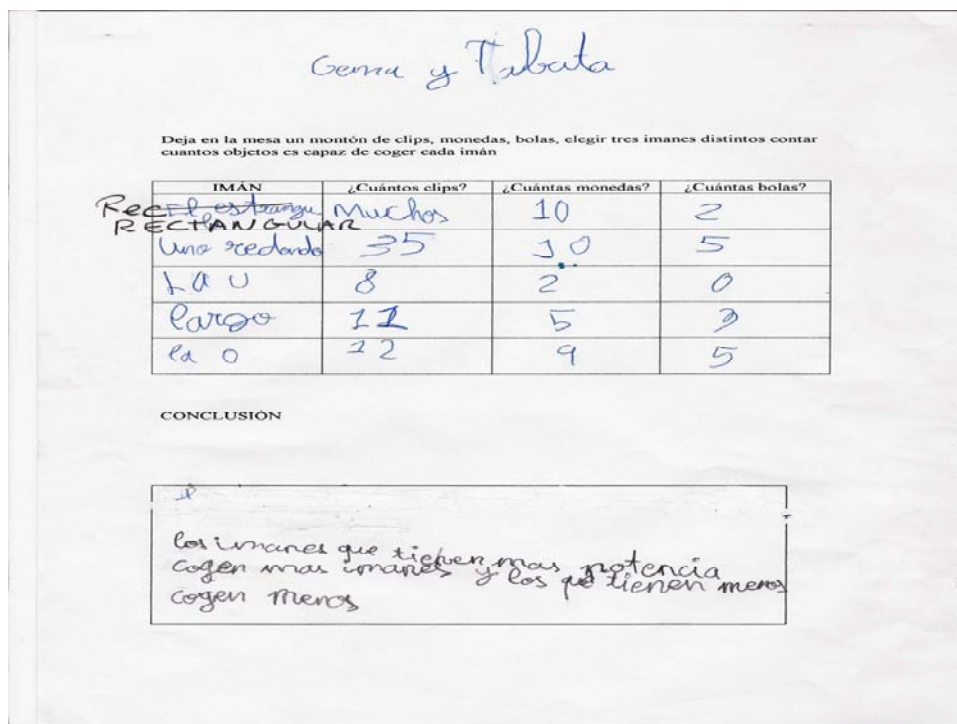 Gema y Tabata
Deja en la mesa un montón de clips, monedas, bolas, elegir tres imanes distintos contar
cuantos objetos es capaz de coger cada imán
IMÁN ¿Cuántos clips? ¿Cuántas monedas? ¿Cuántas bolas?
Rec El estrangu Muchos 10 2
RECTANGULAR
Uno redondo 35 10 5
LA U 8 2 0
largo 11 5 3
la O 12 9 5
CONCLUSIÓN
los imanes que tienen mas potencia
cogen mas imanes y los que tienen menos
cogen menos